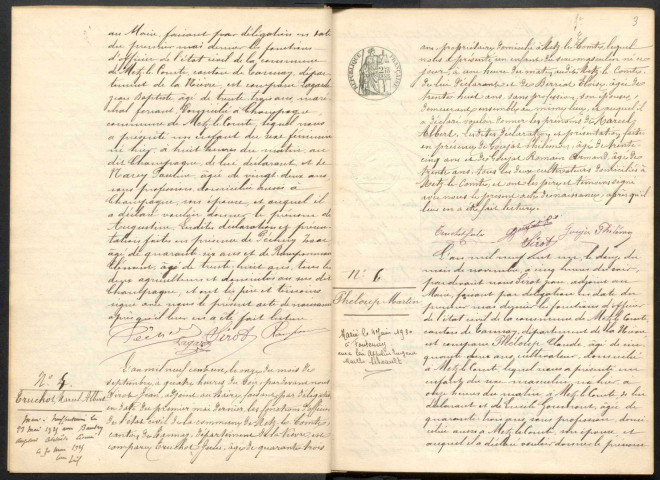 au Maire, faisant par délégation en date
du premier mai dernier les fonctions
d'officier de l'état civil de la commune
de Metz le Comte, canton de Tannay, dépar-
tement de la Nièvre, est comparu Lagarde
Jean Baptiste âgé de trente cinq ans, maré
chal ferrant, domicilié à Champagne,
commune de Metz le Comte, lequel nous
a présenté un enfant du sexe féminin
né hier, à huit heures du matin, au
dit Champagne, de lui déclarant et de
Marcy Pauline, âgée de vingt deux ans
sans profession, domiciliée aussi à
Champagne, son épouse, et auquel il
a déclaré vouloir donner le prénom de
Augustine
déclaration et présen
tation faites en présence de
âgé de quarante
ans et de
Clément, âgé de trente huit ans, tous les
deux agriculteurs et domiciliés au dit
Champagne, et ont les père et témoins
signé avec nous le présent acte de naissance
après qu'il leur en a été fait lecture
Lagarde Girot
N° 5.
Cruchot Marcel Albert
L'an mil neuf cent un, le onze du mois de
septembre à quatre heures du soir, par devant nous
Girot Jean, adjoint au Maire, faisant par délégation
en date du premier mai dernier, les fonctions d'officier
de l'état civil de la commune de Metz le Comte
canton de Tannay, département de la Nièvre, est
comparu Cruchot Jules, âgé de quarante trois
3
RÉPUBLIQUE FRANÇAISE
ans, propriétaire domicilié à Metz le Comte, lequel
nous a présenté un enfant du sexe masculin né ce
jour, à une heure du matin, au dit Metz le Comte,
de lui déclarant et de Bernard Eloïse, âgée de
trente huit ans, sans profession, son épouse,
demeurant ensemble au même lieu, et auquel il
a déclaré vouloir donner les prénoms de Marcel
Albert. Lesdites déclaration et présentation faites
en présence de Goujat Philémon, âgé de trente
cinq ans et de Goujat Romain Armand, âgé de
trente ans, tous les deux cultivateurs domiciliés à
Metz le Comte, et ont les père et témoins signé
avec nous le présent acte de naissance, après qu'il
leur en a été fait lecture.
Cruchot Jules Girot Goujat Philémon
N° 6.
Philoup Martin
Marié le 4 juin 1930
à
L'an mil neuf cent un, le douze du
mois de novembre, à cinq heures du soir,
par devant nous Girot Jean adjoint au
Maire, faisant par délégation en date du
premier mai dernier les fonctions d'officier
de l'état civil de la commune de Metz le Comte,
canton de Tannay, département de la Nièvre
est comparu Philoup Claude, âgé de cin
quante deux ans, cultivateur, domicilié
à Metz le Comte, lequel nous a présenté un
enfant du sexe masculin, né hier, à
onze heures du matin, à Metz le Comte, de lui
déclarant et de
âgée de
quarante cinq ans, sans profession, domi
ciliée aussi à Metz le Comte, son épouse, et
auquel il a déclaré vouloir donner le prénom